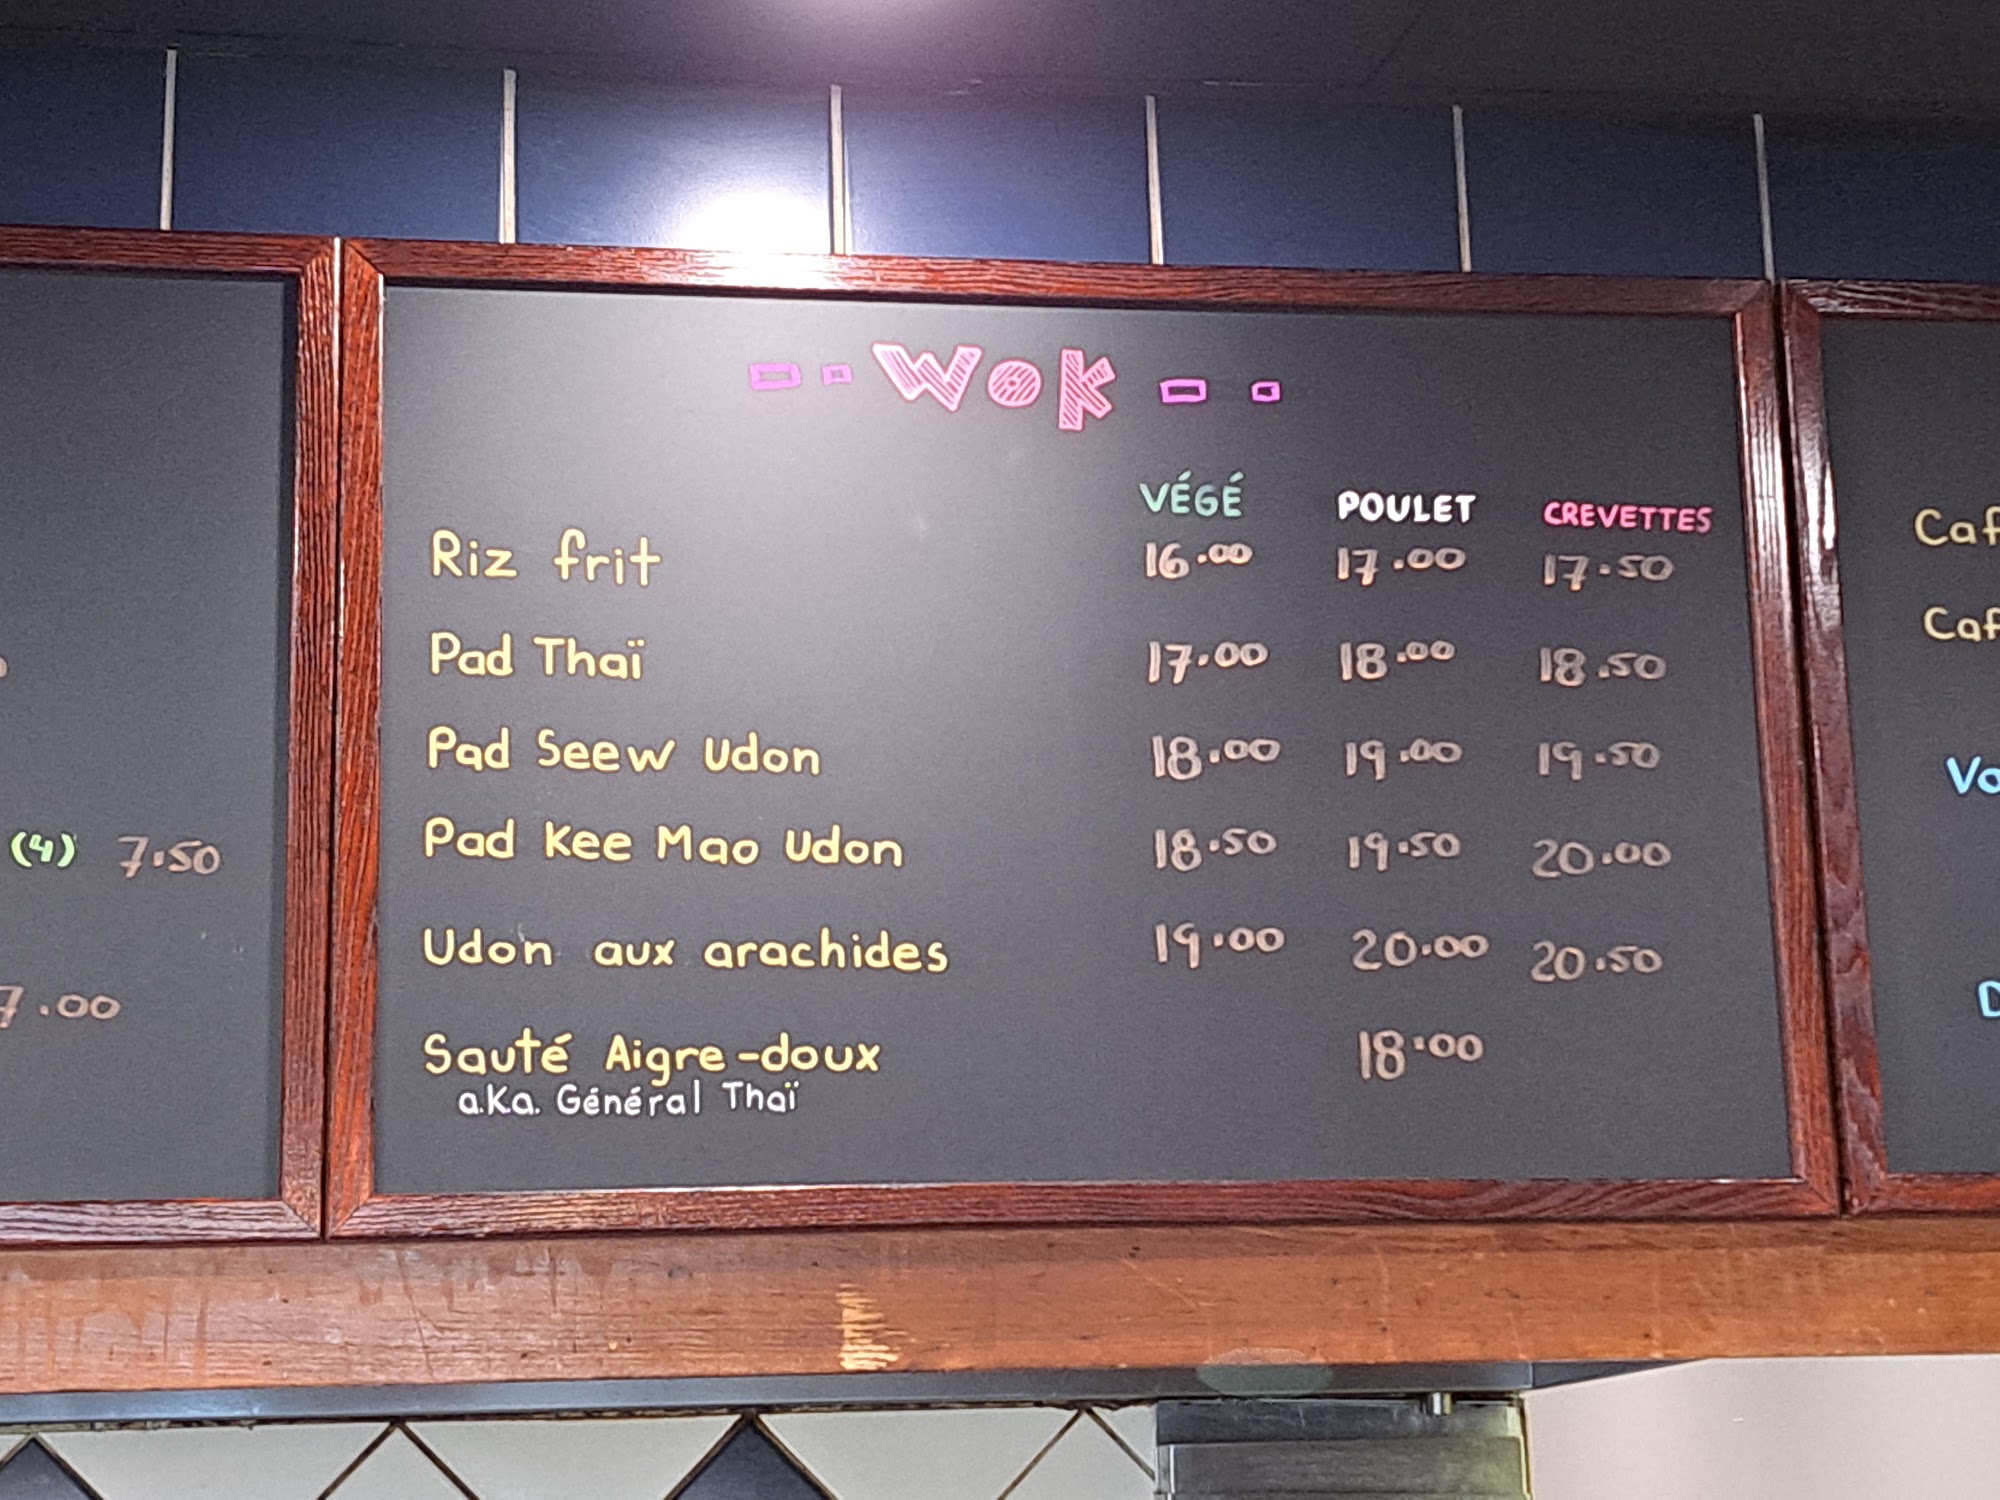 Wok
VÉGÉ POULET CREVETTES
Riz frit 16.00 17.00 17.50
Pad Thaï 17.00 18.00 18.50
Pad Seew Udon 18.00 19.00 19.50
Pad Kee Mao Udon 18.50 19.50 20.00
Udon aux arachides 19.00 20.00 20.50
Sauté Aigre-doux 18.00
a.K.a. Général Thaï
(4) 7.50
7.00